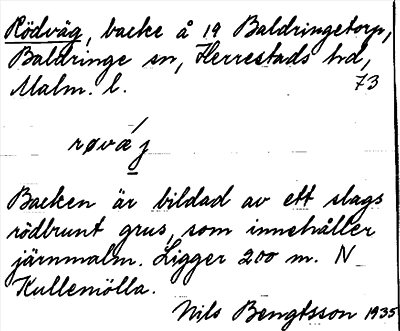 Rödväg, backe å 19 Baldringetorp,
Baldringe sn, Herrestads hd,
Malm. l. 73
røvǽj
Backen är bildad av ett slags
rödbrunt grus, som innehåller
järnmalm. Ligger 200 m. N
Kullemölla.
Nils Bengtsson 1935